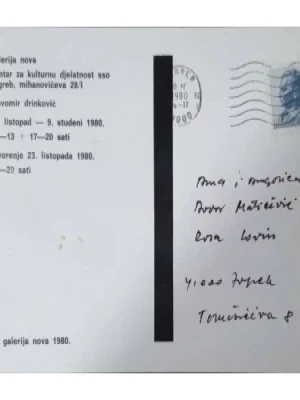 galerija nova
ntar za kulturnu djelatnost sso
greb, mihanovićeva 28/1
avomir drinković
listopad — 9. studeni 1980.
—13 + 17—20 sati
vorenje 23. listopada 1980.
—20 sati
galerija nova 1980.
1980
Ana i
Matičević
41000 Zagreb
Tomašićeva 8